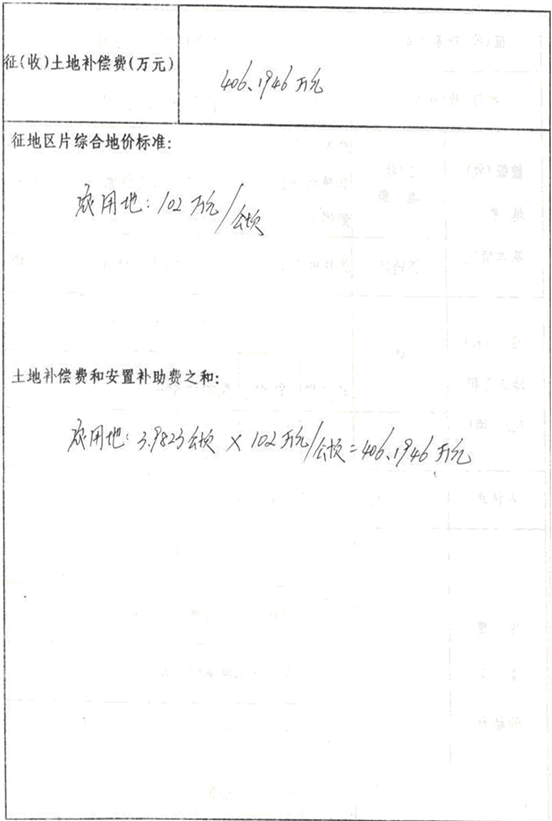 征(收)土地补偿费(万元)
406.1946万元
征地区片综合地价标准:
农用地:102万元/公顷
土地补偿费和安置补助费之和:
农用地:3.9823公顷×102万元/公顷=406.1946万元